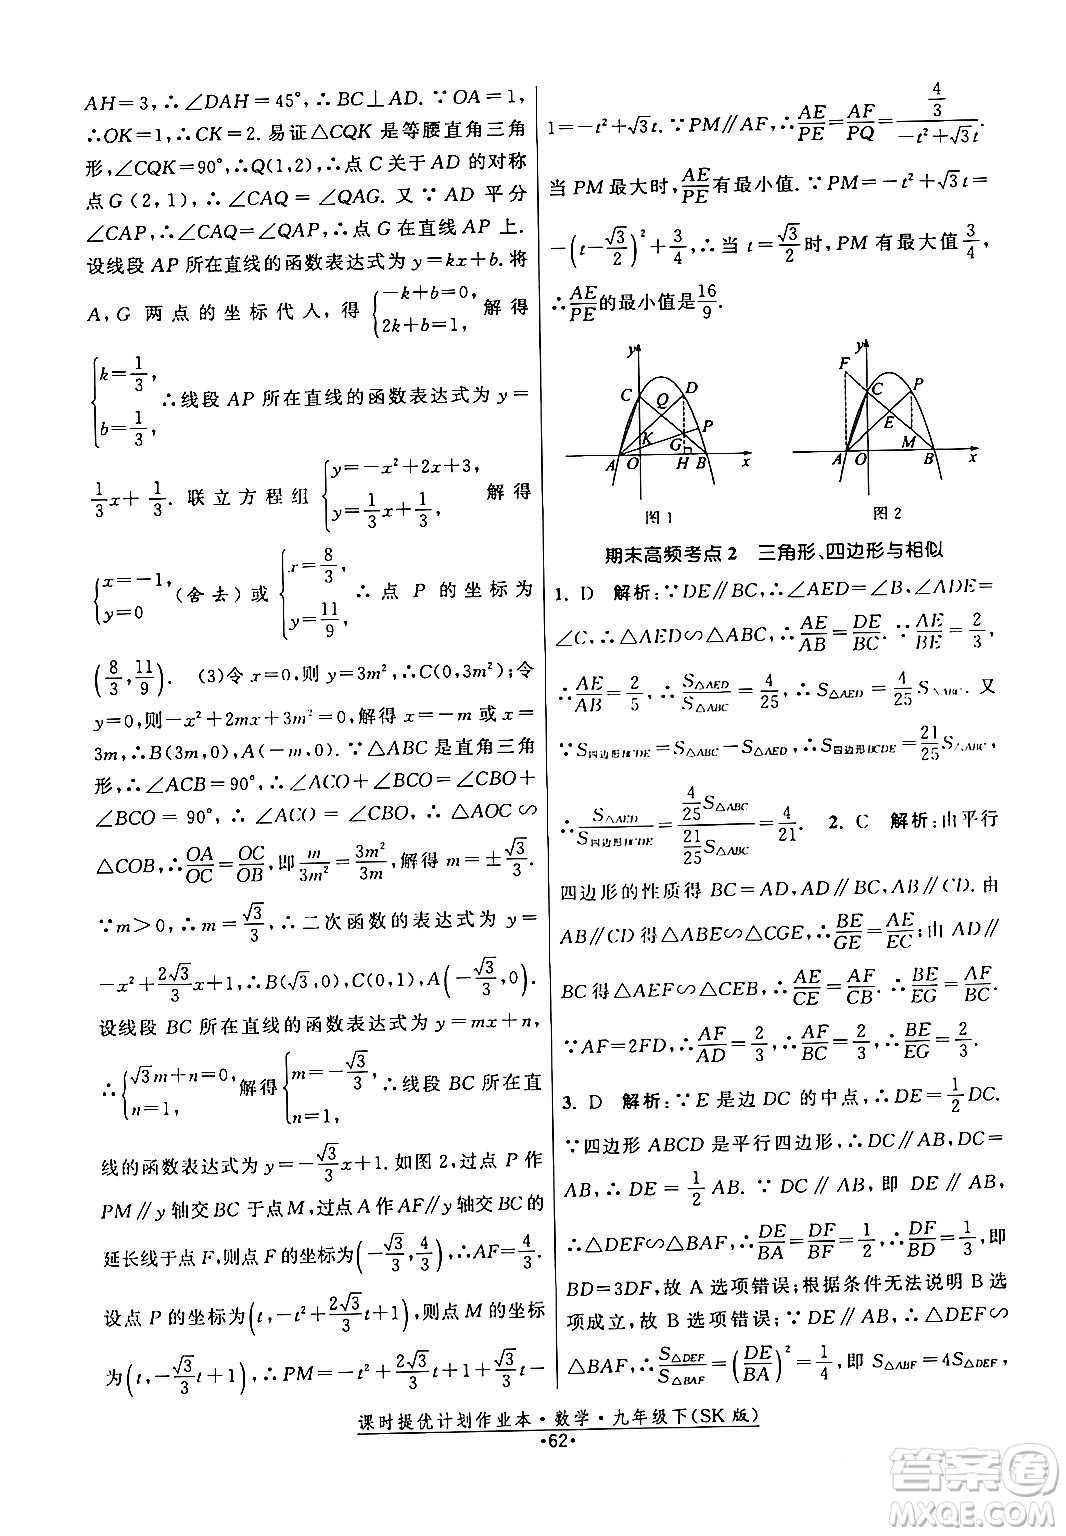 AH=3,∴∠DAH=45°,∴BC⊥AD.∵OA=1,
∴OK=1,∴CK=2.易证△CQK是等腰直角三角
形,∠CQK=90°,∴Q(1,2),∴点C关于AD的对称
点G(2,1),∴∠CAQ=∠QAG.又∵AD平分
∠CAP,∴∠CAQ=∠QAP,∴点G在直线AP上.
设线段AP所在直线的函数表达式为y=kx+b.将
A,G两点的坐标代人,得{-k+b=0, 2k+b=1,解得
{k=1/3, b=1/3,∴线段AP所在直线的函数表达式为y=
1/3x+1/3.联立方程组{y=-x²+2x+3, y=1/3x+1/3,解得
{x=-1, y=0(舍去)或{x=8/3, y=11/9,∴点P的坐标为
(8/3,11/9).(3)令x=0,则y=3m²,∴C(0,3m²);令
y=0,则-x²+2mx+3m²=0,解得x=-m或x=
3m,∴B(3m,0),A(-m,0).∵△ABC是直角三角
形,∴∠ACB=90°,∴∠ACO+∠BCO=∠CBO+
∠BCO=90°,∴∠ACO=∠CBO,∴△AOC∽
△COB,∴OA/OC=OC/OB,即m/3m²=3m²/3m,解得m=±√3/3.
∵m>0,∴m=√3/3,∴二次函数的表达式为y=
-x²+2√3/3x+1,∴B(√3,0),A(-√3/3,0).
设线段BC所在直线的函数表达式为y=mx+n,
∴{√3m+n=0, n=1,解得{m=-√3/3, n=1,∴线段BC所在直
线的函数表达式为y=-√3/3x+1.如图2,过点P作
PM∥y轴交BC于点M,过点A作AF∥y轴交BC的
延长线于点F,则点F的坐标为(-√3/3,4/3),∴AF=4/3.
设点P的坐标为(t,-t²+2√3/3t+1),则点M的坐标
为(t,-√3/3t+1),∴PM=-t²+2√3/3t+1+√3/3t-
1=-t²+√3t.∵PM∥AF,∴AE/PE=AF/PQ=4/3/(-t²+√3t).
当PM最大时,AE/PE有最小值.∵PM=-t²+√3t=
-(t-√3/2)²+3/4,∴当t=√3/2时,PM有最大值3/4,
∴AE/PE的最小值是16/9.
y C Q D K G P A O H B x
图1
y F C P E M A O B x
图2
期末高频考点2 三角形、四边形与相似
1. D 解析:∵DE∥BC,∴∠AED=∠ABC,∠ADE=
∠C,∴△AED∽△ABC,∴AE/AB=DE/BC.∵AE/BE=2/3,
∴AE/AB=2/5,∴S△AED/S△ABC=4/25,∴S△AED=4/25S△ABC.又
∵S四边形BCDE=S△ABC-S△AED,∴S四边形BCDE=21/25S△ABC,
∴S△AED/S四边形BCDE=4/25S△ABC/21/25S△ABC=4/21. 2. C 解析:由平行
四边形的性质得BC=AD,AD∥BC,AB∥CD.由
AB∥CD得△ABE∽△CGE,∴BE/GE=AE/EC;由AD∥
BC得△AEF∽△CEB,∴AE/CE=AF/CB.∴BE/EG=AF/BC.
∵AF=2FD,∴AF/AD=2/3,∴AF/BC=2/3,∴BE/EG=2/3.
3. D 解析:∵E是边DC的中点,∴DE=1/2DC.
∵四边形ABCD是平行四边形,∴DC∥AB,DC=
AB,∴DE=1/2AB.∵DC∥AB,即DE∥AB,
∴△DEF∽△BAF,∴DE/BA=DF/BF=1/2,∴DF/BD=1/3,即
BD=3DF,故A选项错误;根据条件无法说明B选
项成立,故B选项错误;∵DE∥AB,∴△DEF∽
△BAF,∴S△DEF/S△BAF=(DE/BA)²=1/4,即S△ABF=4S△DEF,
课时提优计划作业本·数学·九年级下(SK版)
·62·
答案圈
MXQE.COM